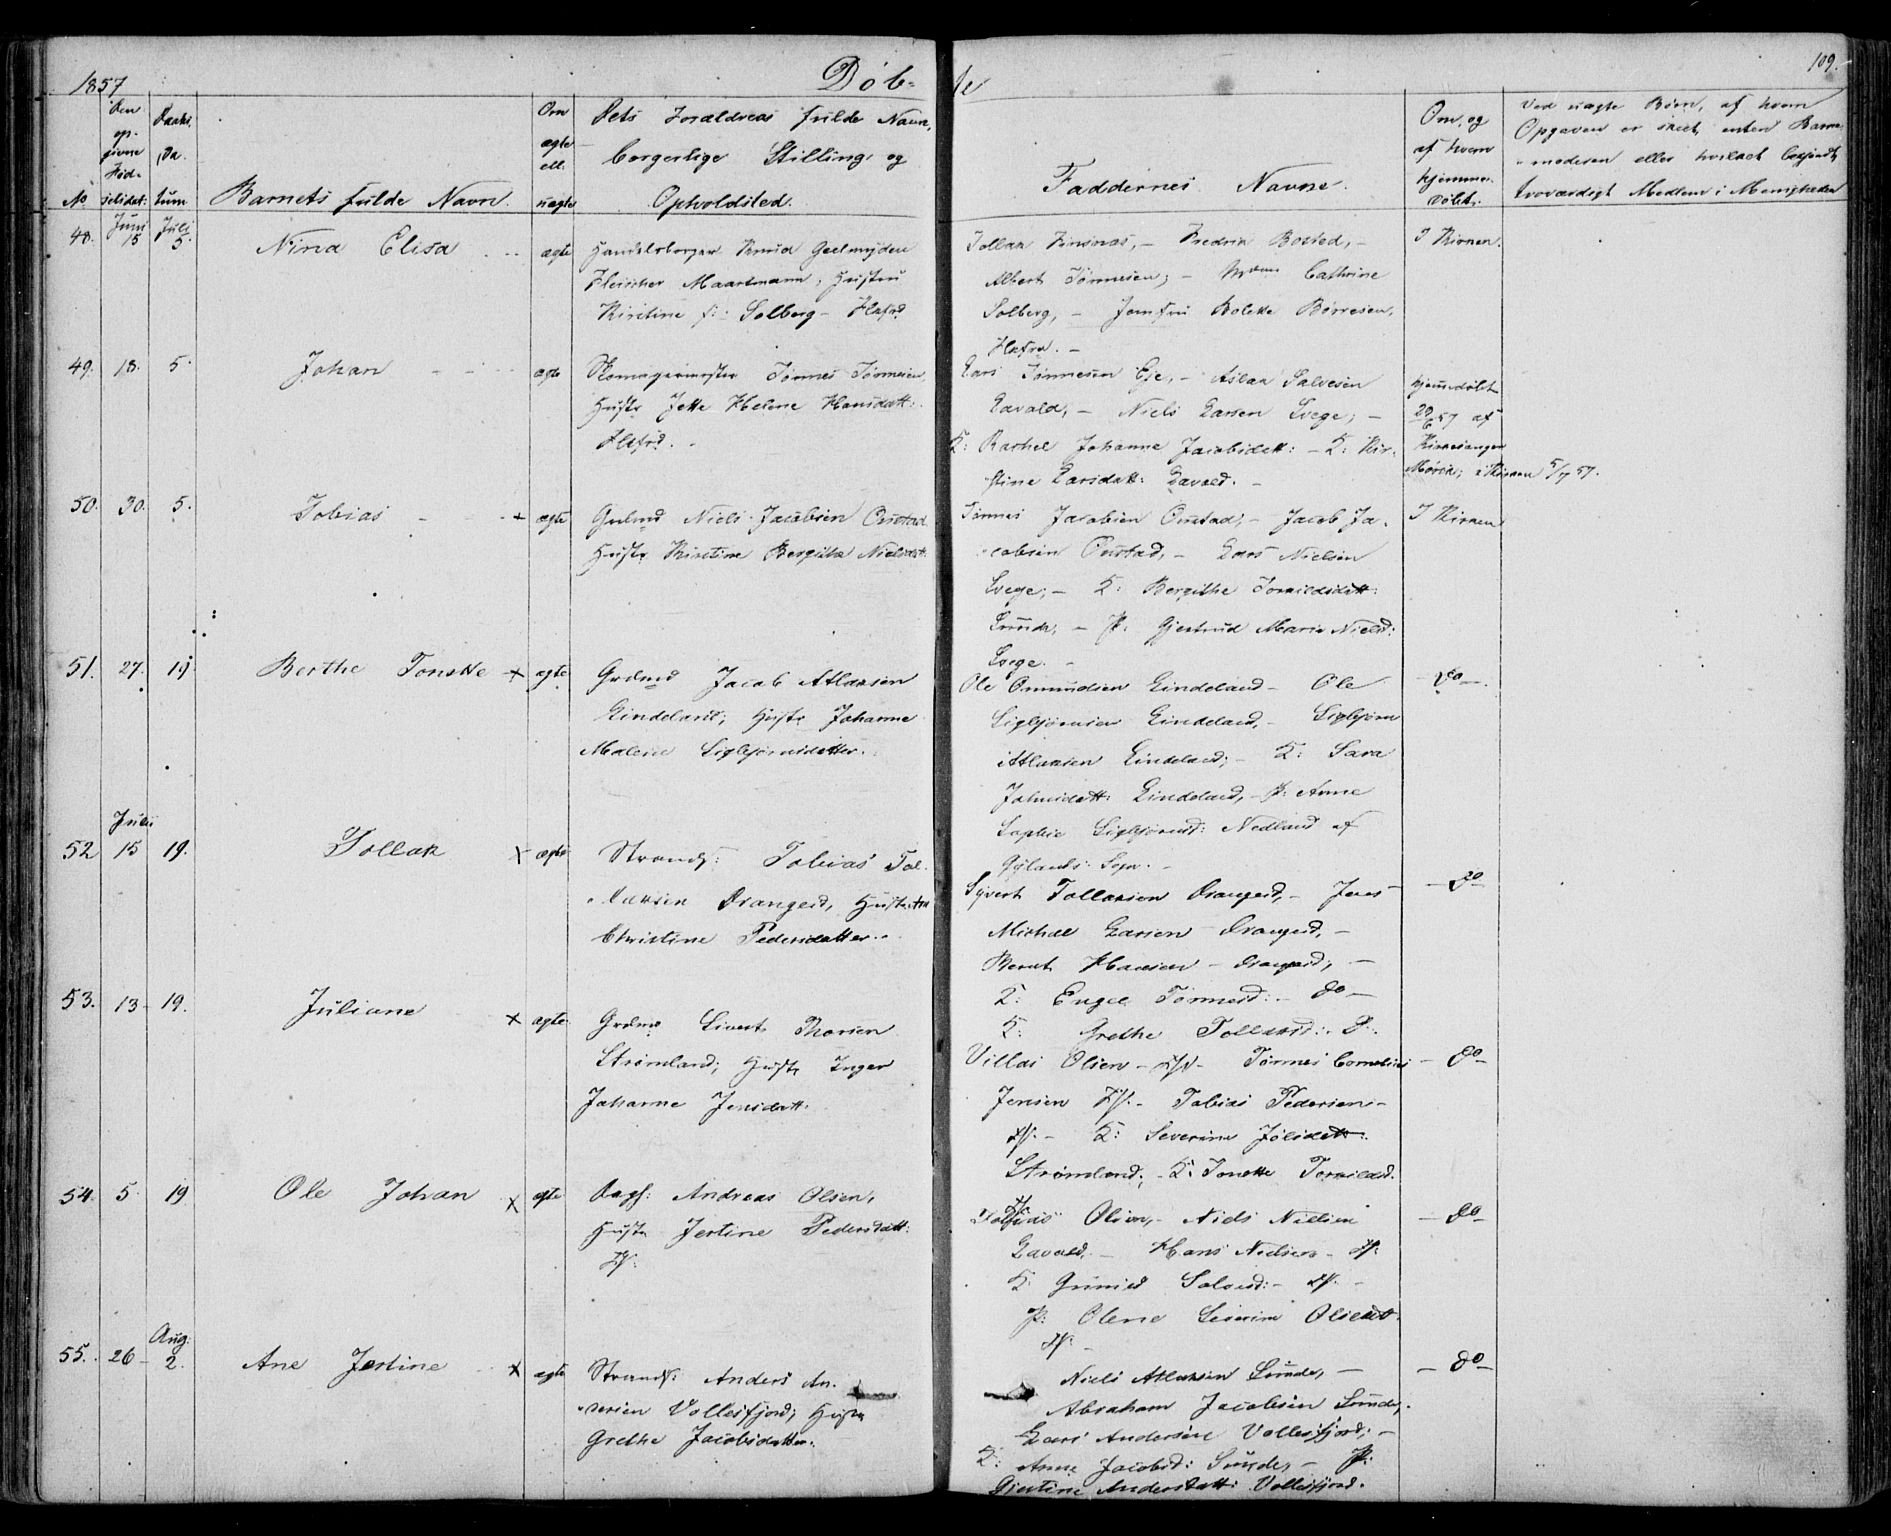 1857
Døb-
te
109.
Den op- givne Fød- selsdat.
Daabs- Da- tum
No
Barnets fulde Navn.
Om ægte ell. uægte
Dets Forældres fulde Navn,
borgerlige Stilling og
Opholdsted.
Faddernes Navne.
Om, og
af hvem
hjemme-
døbt.
Ved uægte Børn, af hvem
Opgaven er skeet, enten Barne-
moderen eller hvilket
troværdigt Medlem i Menigheden
48. Juni 15 Juli 5. Nina Elisa ægte Handelsborger Knud Geelmuyden
Fleischer Maartmann, Hustru
Kirstine f: Solberg - Flkfrd
Tollak - Fredrik Bosted, -
Albert Tønnesen; - Cathrine
Solberg, - Jomfru Bolette Børresen,
Flkfrd. -
I Kirken.
49. 18. 5. Johan ægte Skomagermester Tønnes Tønnesen
Hustr Jette Helene Hansdatt:
Flkfrd.
Lars Tønnesen Eje, - Aslak Salvesen
Lavold, - Niels Larsen Svege; -
K: Rachel Johanne Jacobsdatt: - K: Kir-
stine Larsdatt: Lavold. -
hjemmedøbt
20/6 57 af
Kirkesanger
Mørch; i Kirken 5/7 57.
50. 30. 5. Tobias + ægte Grdmd Niels Jacobsen Onstad
Hustr Kirstine Bergithe Nielsdtt.
Tønnes Jacobsen Onstad, - Jacob Ja-
cobsen Onstad, - Lars Nielsen
Svege; - K: Bergithe Torkildsdatt:
Sunde, - P. Gjertrud Marie Nielsd:
Svege. -
I Kirken
51. 27. 19 Berthe Tonette + ægte Grdmd Jacob Atlaksen
Lindeland; Hustr Johanne
Malene Sigbjørnsdatter.
Ole Omundsen Lindeland - Ole
Sigbjørnsen Lindeland, - Sigbjørn
Atlaksen Lindeland; - K: Sara
Johnsdatt: Lindeland, - P. Anne
Sophie Sigbjørnsd: Nedland af
Gylands Sogn. -
- do -
52 Juli 15 19. Tollak x ægte Strands: Tobias Tol-
laksen Drangeid, Hustr Ane
Christine Pedersdatter.
Syvert Tollaksen Drangeid, - Jens
Michael Larsen Drangeid, -
Bernt Hansen - Drangeid; -
K: Engel Tønnesd: - do -
K: Grethe Tollaksd:
- do -
53. 13 - 19. Juliane x ægte Grdmd Sivert Thorsen
Strømland; Hustr Inger
Johanne Jensdatt:
Villas Olsen - Tønnes Cornelius
Jensen - Tobias Pedersen -
K: Severine
Strømland; - K: Tonette Torkildsd.
- do -
54. 5. 19 Ole Johan x ægte Dagl: Andreas Olsen,
Hustr Jertine Pedersdatt:
Tobias Olsen, - Niels Nielsen
Lavold, - Hans Nielsen -
K. Gunild Salvesd: -
P: Olene Severine Olsdatt
- do -
55. 26 - Aug. 2. Ane Jertine x ægte Strands: Anders An-
dersen Vollesfjord; Hustr
Grethe Jacobsdatter.
Niels Atlaksen Sunde, -
Abraham Jacobsen Sunde,
Lars Andersen Vollesfjord; -
K: Anne Jacobsd: Sunde, - P:
Gjertine Andersdatt: Vollesfjord.
- do -